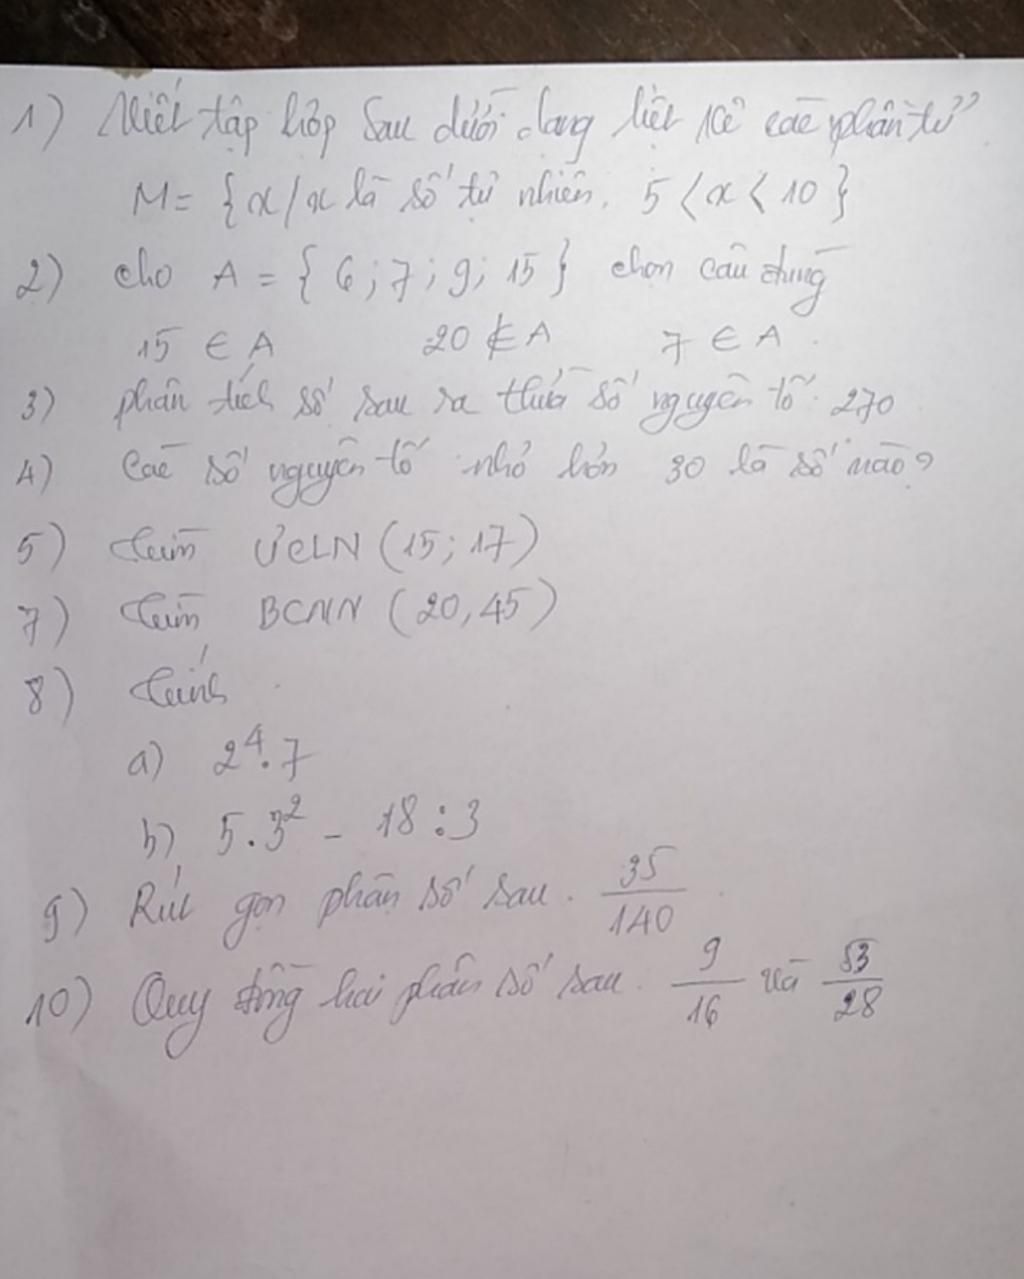 1) Viết tập hợp sau dưới dạng liệt kê các phần tử
M = {x/x là số tự nhiên, 5 < x < 10}
2) cho A = {6; 7; 9; 15} chọn câu đúng
15 ∈ A 20 ∉ A 7 ∈ A.
3) phân tích số sau ra thừa số nguyên tố. 270
4) Các số nguyên tố nhỏ hơn 30 là số nào?
5) tìm ƯCLN (15; 17)
7) tìm BCNN (20, 45)
8) tính
a) 2⁴.7
b) 5.3² - 18:3
9) Rút gọn phân số sau. 35/140
10) Quy đồng hai phân số sau. 9/16 và 53/28